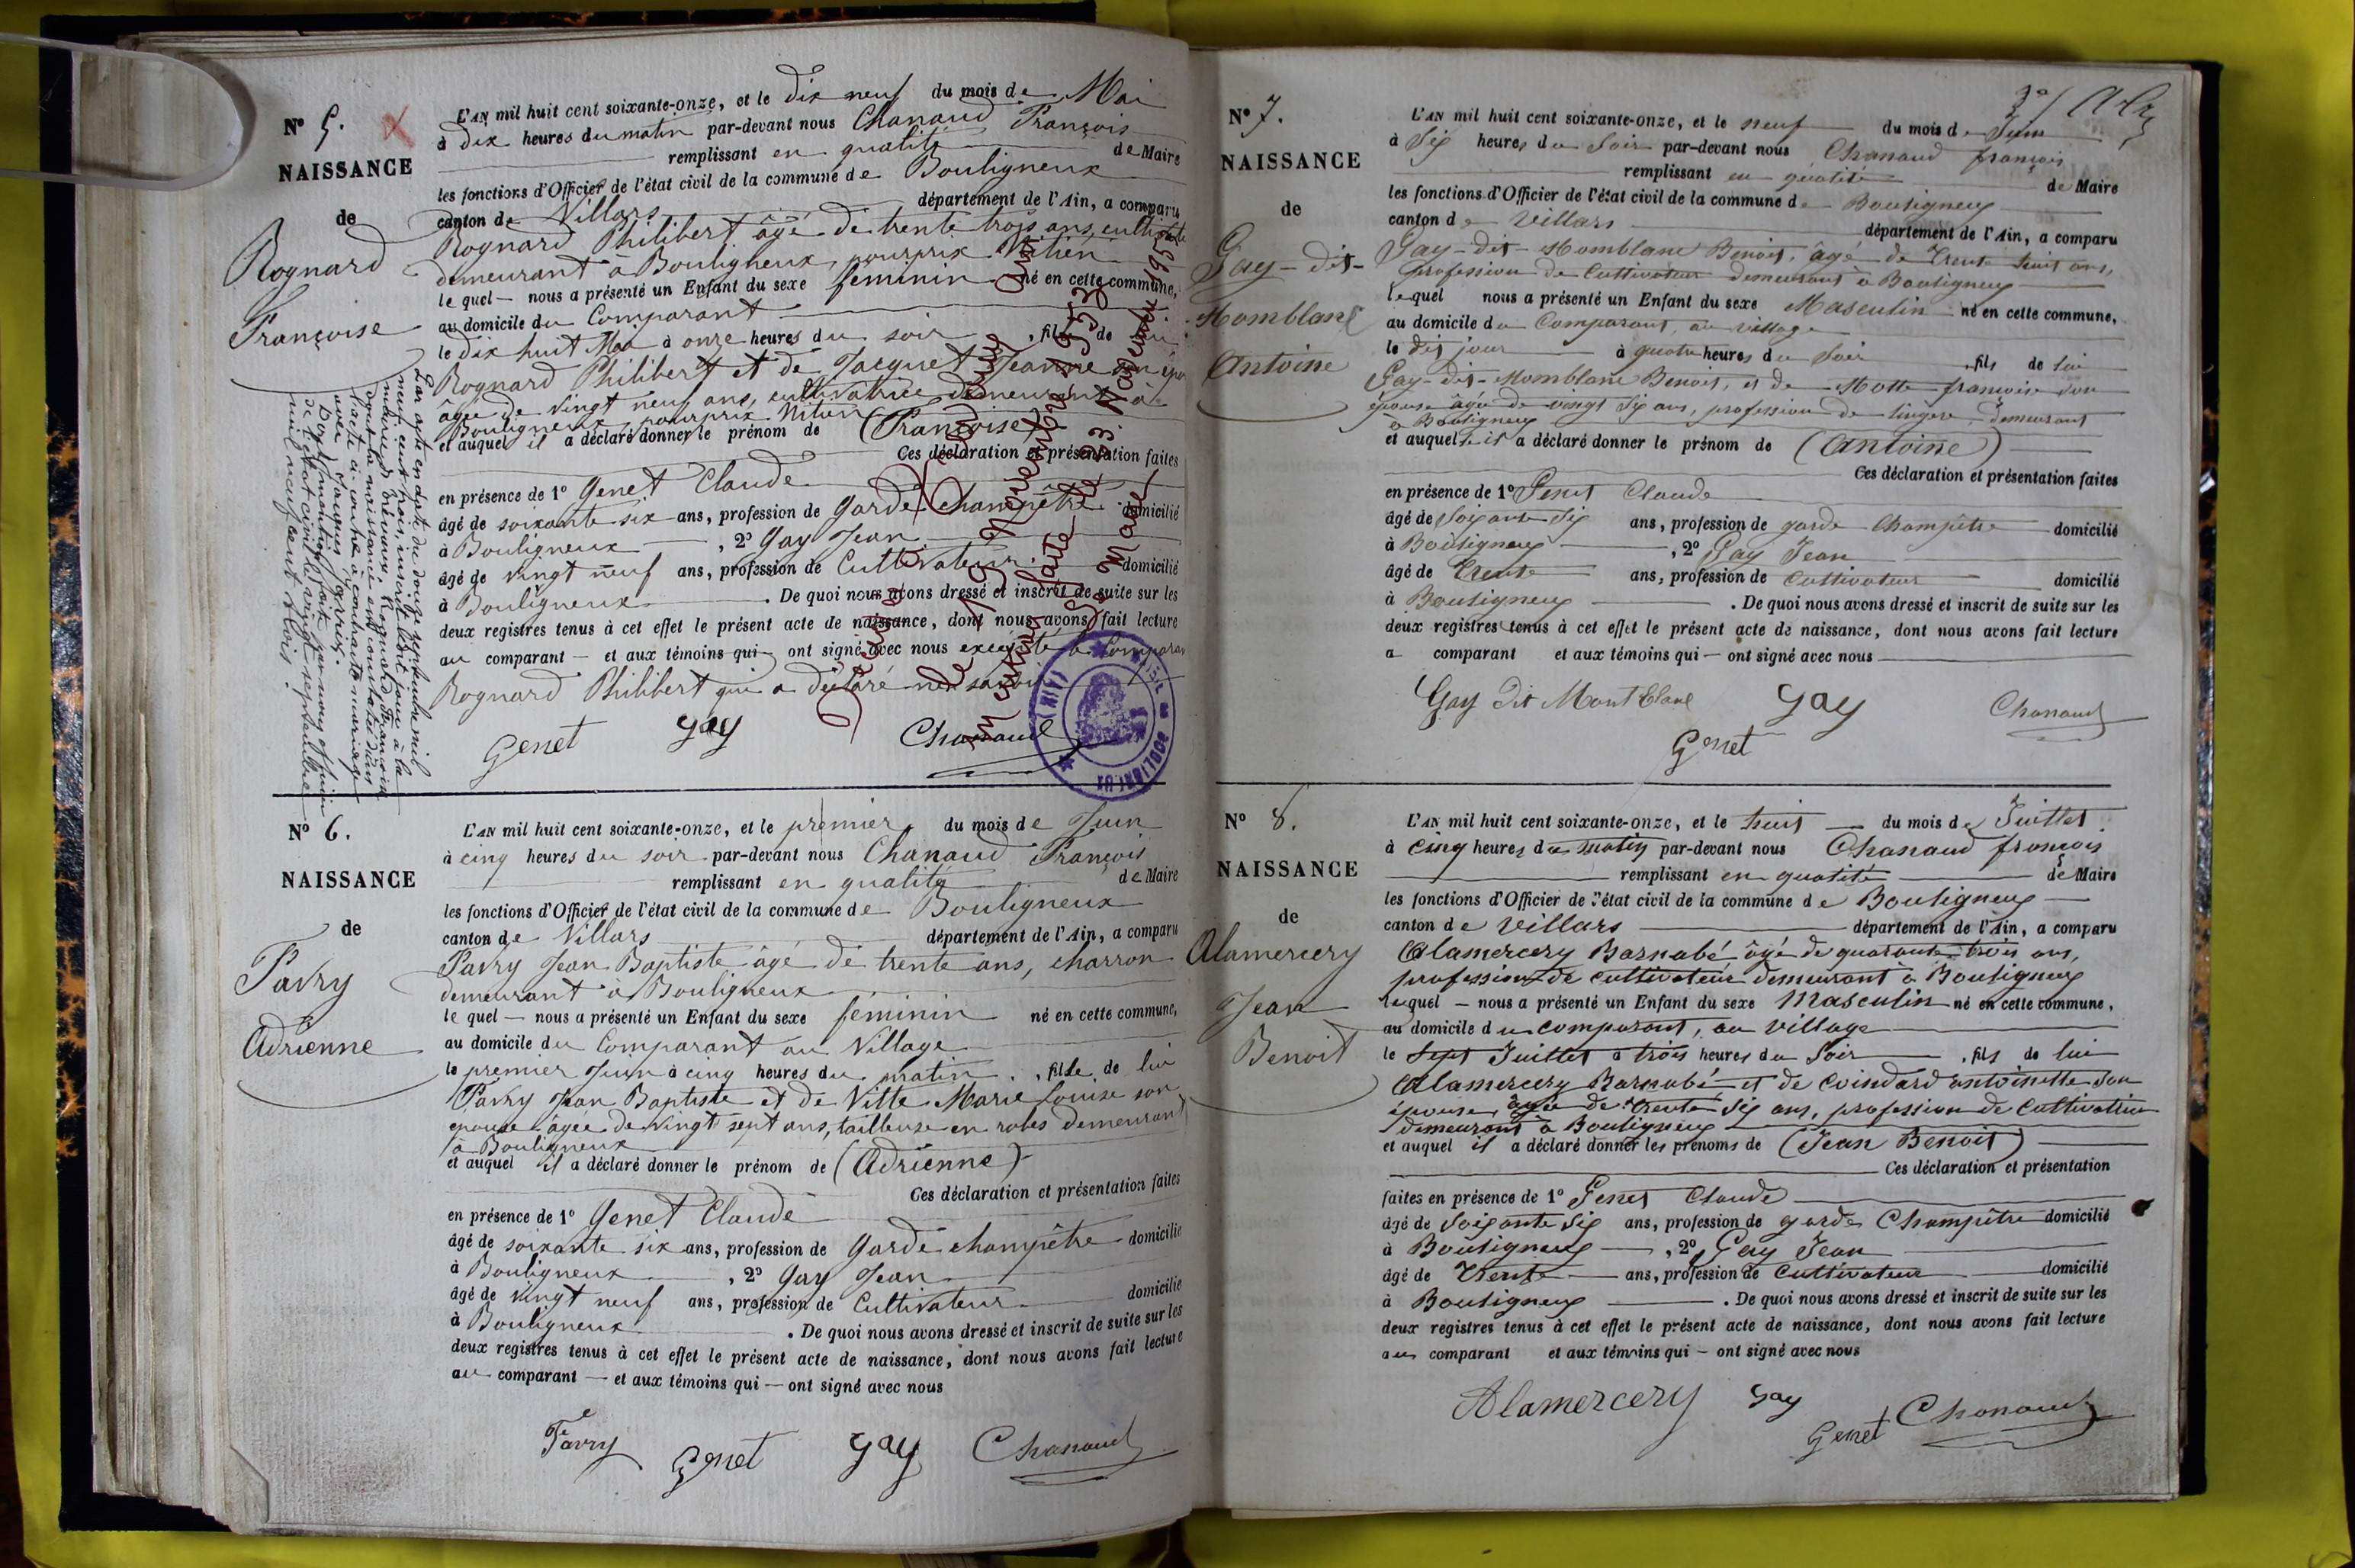 N° 5.
NAISSANCE
de
Rognard
Françoise
L'AN mil huit cent soixante-onze, et le dix neuf du mois de Mai
à dix heures du matin par-devant nous Chanaud François
remplissant en qualité de Maire
les fonctions d'Officier de l'état civil de la commune de Bouligneux
canton de Villars département de l'Ain, a comparu
Rognard Philibert âgé de trente trois ans,
demeurant à Bouligneux,
le quel — nous a présenté un Enfant du sexe féminin né en cette commune,
au domicile du Comparant
le dix huit Mai à onze heures du soir , fille de lui
Rognard Philibert et de Jacquet Jeanne son
âgée de vingt neuf ans, cultivatrice demeurant à
Bouligneux,
et auquel il a déclaré donner le prénom de (Françoise)
Ces déclaration et présentation faites
en présence de 1° Genet Claude
âgé de soixante six ans, profession de Garde champêtre domicilié
à Bouligneux , 2° Gay Jean
âgé de vingt neuf ans, profession de Cultivateur domicilié
à Bouligneux . De quoi nous avons dressé et inscrit de suite sur les
deux registres tenus à cet effet le présent acte de naissance, dont nous avons fait lecture
au comparant — et aux témoins qui — ont signé avec nous excepté le Comparant
Rognard Philibert qui a déclaré ne savoir
Genet Gay Chanaud
Par acte en date du douze septembre mil
neuf cent trois, inscrit le dit jour à la
mairie de
dont la naissance est constatée dans
l'acte ci-contre à contracté mariage
avec Jacques
Dont mention faite par nous officier
de l'état civil le vingt septembre
mil neuf cent trois.
le 19 Novembre 1953
Mention faite le 23 Novembre 1953
Le Maire
N° 6.
NAISSANCE
de
Pavry
Adrienne
L'AN mil huit cent soixante-onze, et le premier du mois de Juin
à cinq heures du soir par-devant nous Chanaud François
remplissant en qualité de Maire
les fonctions d'Officier de l'état civil de la commune de Bouligneux
canton de Villars département de l'Ain, a comparu
Pavry Jean Baptiste âgé de trente ans, charron
demeurant à Bouligneux
le quel — nous a présenté un Enfant du sexe féminin né en cette commune,
au domicile du Comparant au Village
le premier Juin à cinq heures du matin , fille de lui
Pavry Jean Baptiste et de Vitte Marie Louise son
épouse âgée de vingt sept ans, tailleuse en robes demeurant
à Bouligneux
et auquel il a déclaré donner le prénom de (Adrienne)
Ces déclaration et présentation faites
en présence de 1° Genet Claude
âgé de soixante six ans, profession de Garde champêtre domicilié
à Bouligneux , 2° Gay Jean
âgé de vingt neuf ans, profession de Cultivateur domicilié
à Bouligneux . De quoi nous avons dressé et inscrit de suite sur les
deux registres tenus à cet effet le présent acte de naissance, dont nous avons fait lecture
au comparant — et aux témoins qui — ont signé avec nous
Pavry Genet Gay Chanaud
N° 7.
NAISSANCE
de
Gay-dit-
Momblanc
Antoine
L'AN mil huit cent soixante-onze, et le neuf du mois de Juin
à Six heures du Soir par-devant nous Chanaud françois
remplissant en qualité de Maire
les fonctions d'Officier de l'état civil de la commune de Bouligneux
canton de Villars département de l'Ain, a comparu
Gay-dit-Momblanc Benoit, âgé de Trente huit ans,
profession de Cultivateur demeurant à Bouligneux
lequel nous a présenté un Enfant du sexe Masculin né en cette commune,
au domicile du Comparant, au village
le dit jour à quatre heures du Soir , fils de lui
Gay-dit-Momblanc Benoit, et de Motte françoise son
épouse âgée de vingt Six ans, profession de lingère demeurant
à Bouligneux
et auquel il a déclaré donner le prénom de (Antoine)
Ces déclaration et présentation faites
en présence de 1° Genet Claude
âgé de Soixante Six ans, profession de garde Champêtre domicilié
à Bouligneux , 2° Gay Jean
âgé de Trente ans, profession de Cultivateur domicilié
à Bouligneux . De quoi nous avons dressé et inscrit de suite sur les
deux registres tenus à cet effet le présent acte de naissance, dont nous avons fait lecture
a comparant et aux témoins qui — ont signé avec nous
Gay Dit Mont blanc Gay Chanaud
Genet
N° 8.
NAISSANCE
de
Alamercery
Jean
Benoit
L'AN mil huit cent soixante-onze, et le huit du mois de Juillet
à Cinq heures du matin par-devant nous Chanaud françois
remplissant en qualité de Maire
les fonctions d'Officier de l'état civil de la commune de Bouligneux
canton de Villars département de l'Ain, a comparu
Alamercery Barnabé âgé de quarante trois ans,
profession de cultivateur demeurant à Bouligneux
lequel — nous a présenté un Enfant du sexe Masculin né en cette commune,
au domicile du comparant, au village
le Sept Juillet à trois heures du Soir , fils de lui
Alamercery Barnabé et de Coindard antoinette Son
épouse, âgée de trente Six ans, profession de Cultivatrice
demeurant à Bouligneux
et auquel il a déclaré donner les prénoms de (Jean Benoit)
Ces déclaration et présentation
faites en présence de 1° Genet Claude
âgé de Soixante Six ans, profession de garde Champêtre domicilié
à Bouligneux , 2° Gay Jean
âgé de Trente ans, profession de Cultivateur domicilié
à Bouligneux . De quoi nous avons dressé et inscrit de suite sur les
deux registres tenus à cet effet le présent acte de naissance, dont nous avons fait lecture
au comparant et aux témoins qui — ont signé avec nous
Alamercery Gay Genet Chanaud